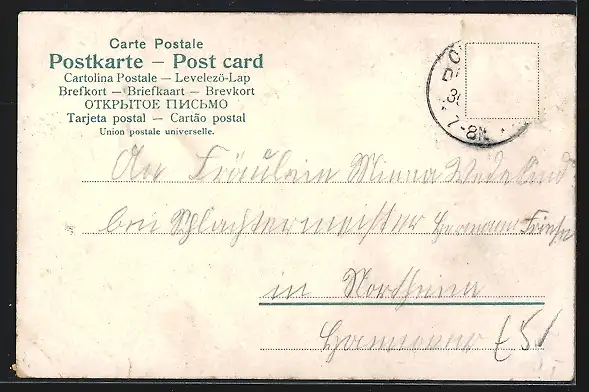 Carte Postale
Postkarte — Post card
Cartolina Postale — Levelező-Lap
Brefkort — Briefkaart — Brevkort
ОТКРЫТОЕ ПИСЬМО
Tarjeta postal — Cartão postal
Union postale universelle.
7-8N
An Fräulein Minna Wedekind
bei Schlachtermeister Hermann
in Northeim
Hannover